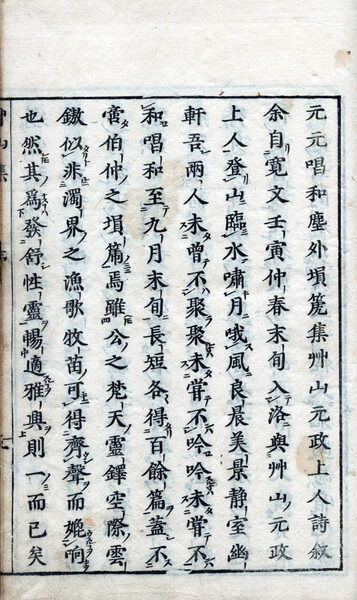 元元唱和塵外塤箎集艸山元政上人詩叙
余自寛文壬寅仲春末旬入洛與艸山元政
上人登山臨水嘯月哦風良晨美景靜室幽
軒吾兩人未曽不聚聚未甞不吟吟未甞不
和唱和至九月末旬長短各得百餘篇蓋不
啻伯仲之塤篪焉雖公之梵天靈鐸空際雲
鏾似非濁界之漁歌牧苗可得齊聲而媲响
也然其為發舒性靈暢適雅興則一而已矣